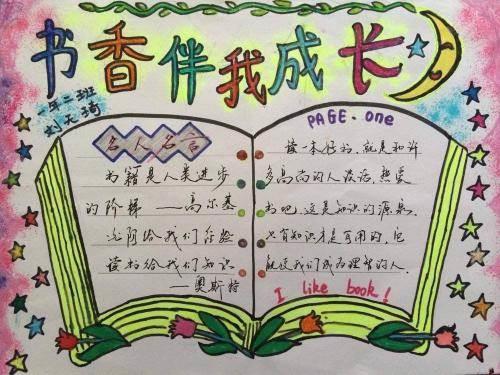 书香伴我成长
一年二班
刘天琦
名人名言
书籍是人类进步
的阶梯 ——高尔基
光阴给我们经验
读书给我们知识
——奥斯特
PAGE.one
读一本好书,就是和许
多高尚的人谈话,热爱
书吧,这是知识的源泉,
只有知识才是有用的,它
能使我们成为理智的人.
I like book!